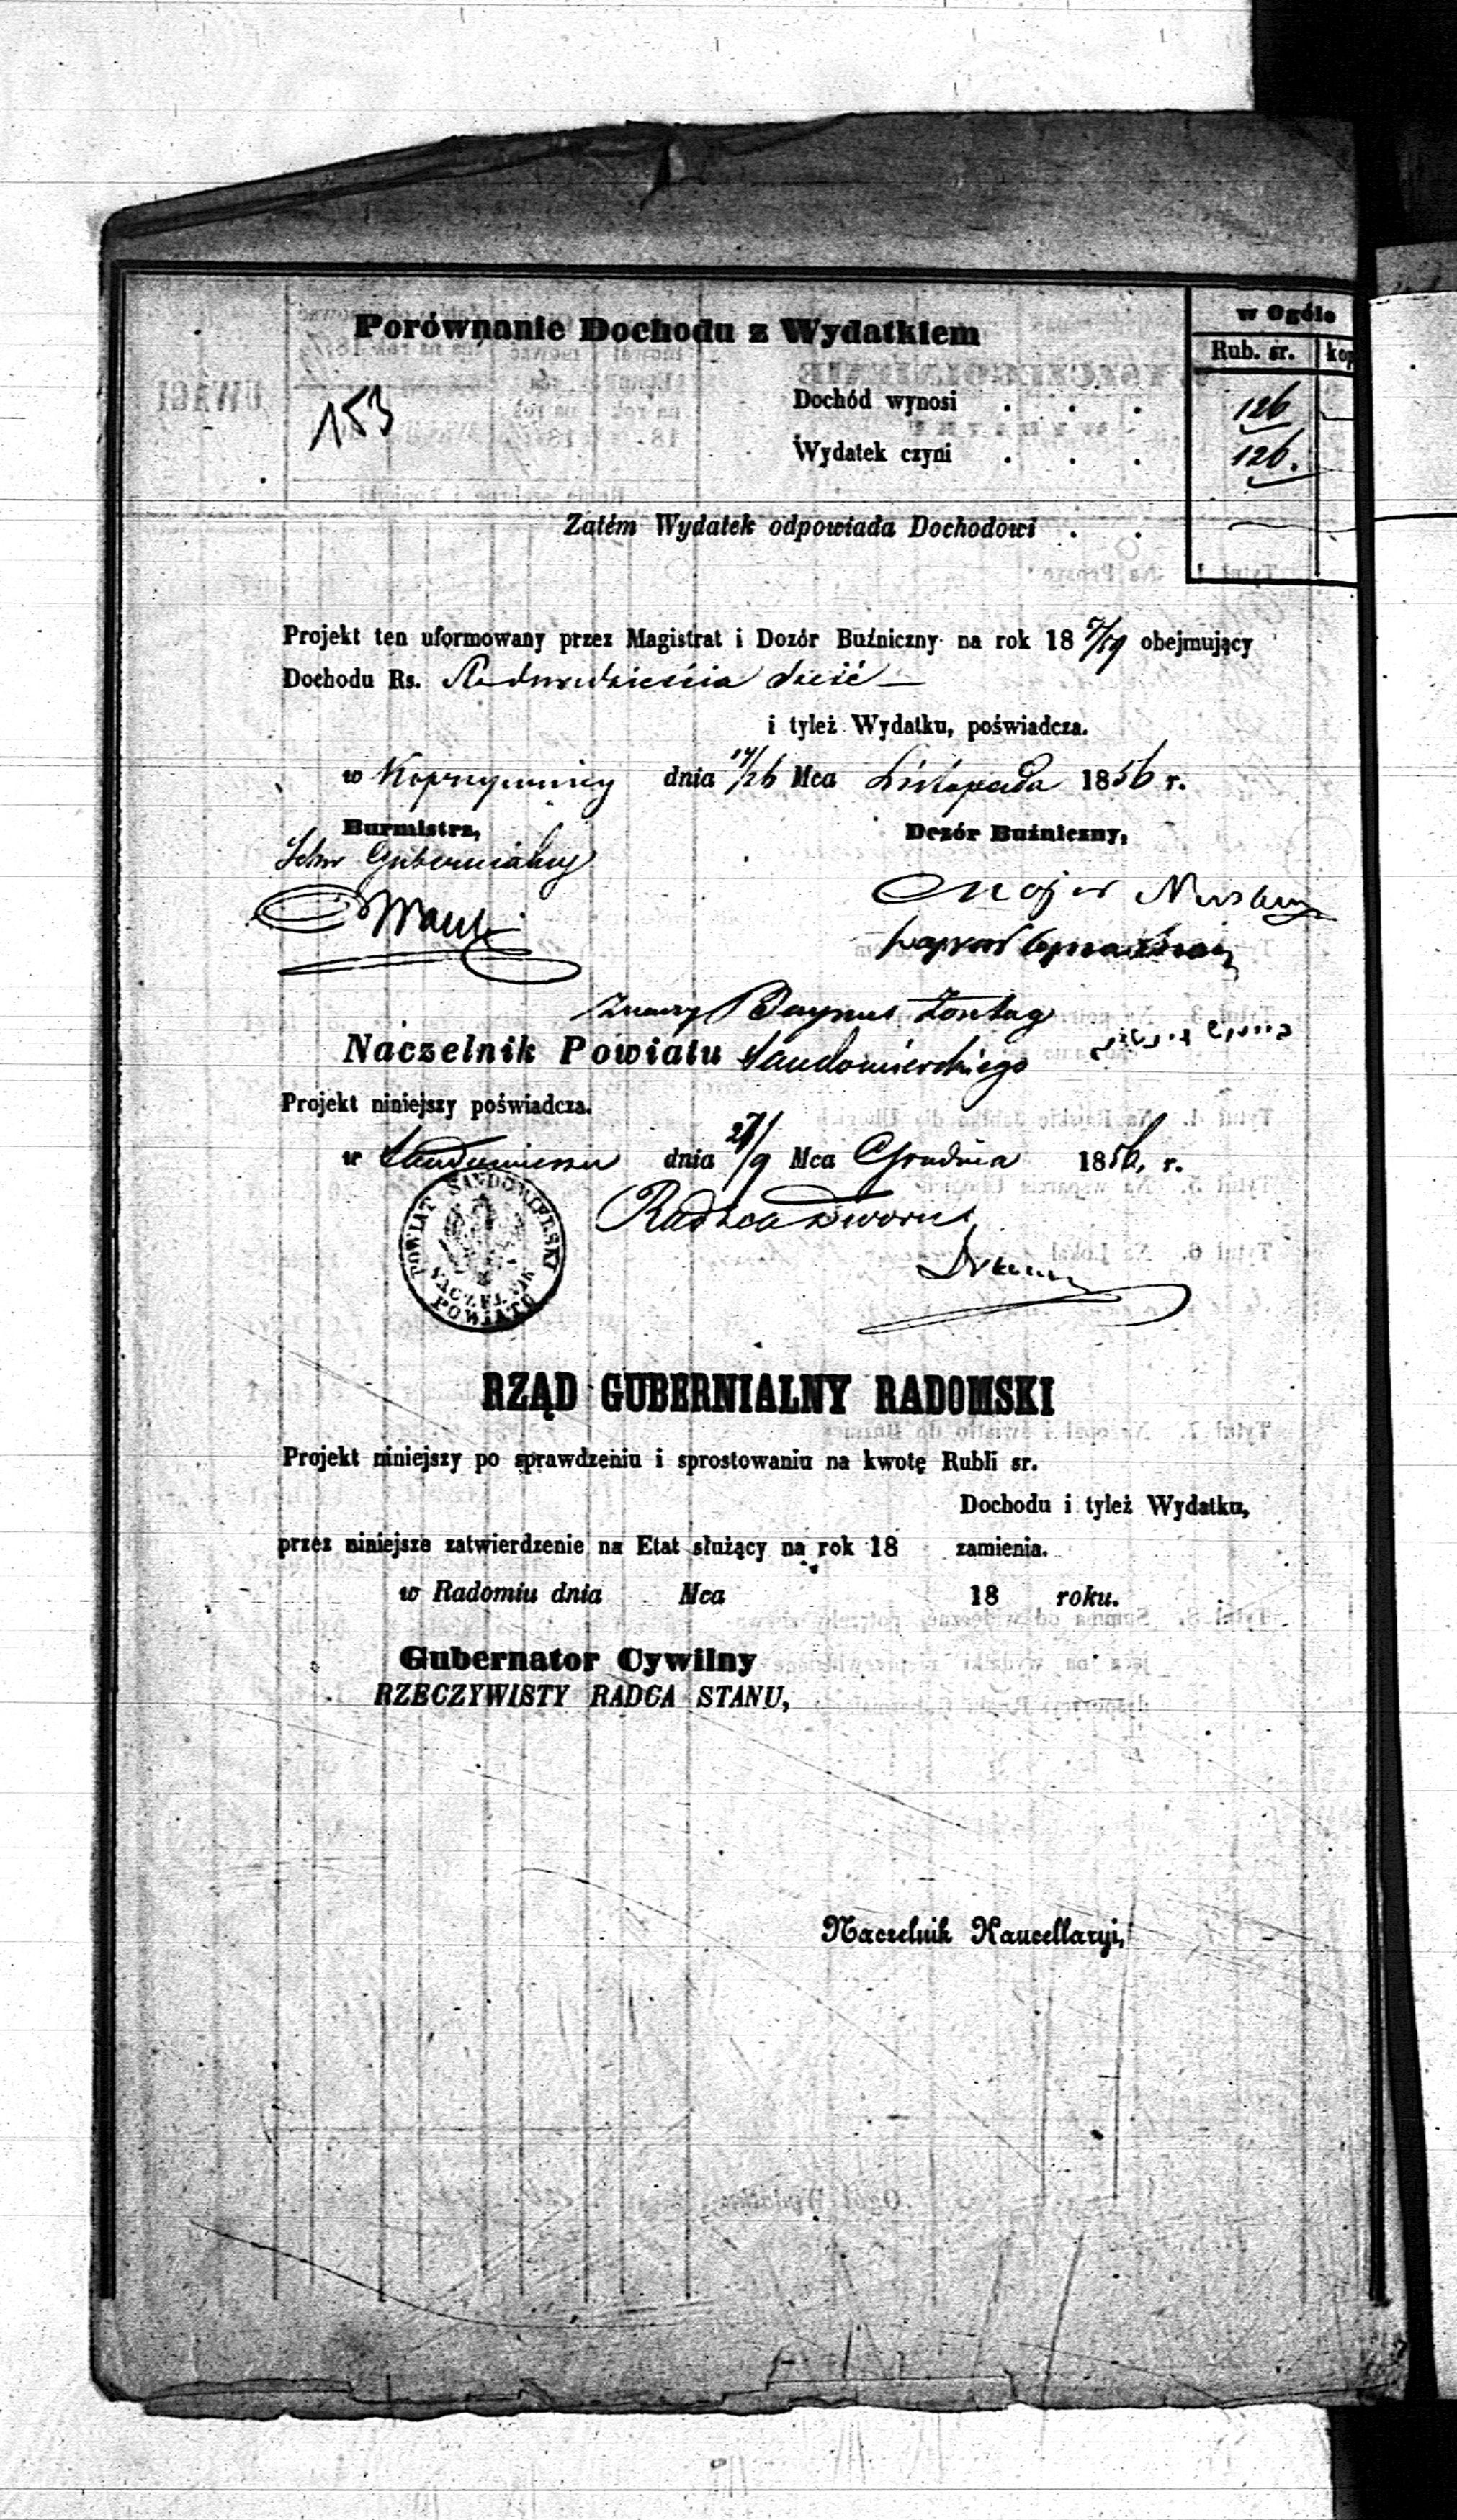 Porównanie Dochodu z Wydatkiem
w Ogóle
Rub. sr. kop
153
Dochód wynosi . . . 126
Wydatek czyni . . . 126.
Zatém Wydatek odpowiada Dochodowi . .
Projekt ten uformowany przez Magistrat i Dozór Buźniczny na rok 18 7/59 obejmujący
Dochodu Rs. sześć
i tyleż Wydatku, poświadcza.
w Koprzywnicy dnia 14/26 Mca Listopada 1856 r.
Burmistrz, Dozór Buźniczny,
Gubernialny
Majer
Zontag
Naczelnik Powiatu Sandomierskiego
Projekt niniejszy poświadcza.
w Sandomierzu dnia 27/9 Mca Grudnia 1856, r.
POWIAT SANDOMIERSKI
NACZELNIK
POWIATU
Radzca Dworu
RZĄD GUBERNIALNY RADOMSKI
Projekt niniejszy po sprawdzeniu i sprostowaniu na kwotę Rubli sr.
Dochodu i tyleż Wydatku,
przez niniejsze zatwierdzenie na Etat służący na rok 18 zamienia.
w Radomiu dnia Mca 18 roku.
Gubernator Cywilny
RZECZYWISTY RADCA STANU,
Naczelnik Kancellaryi,